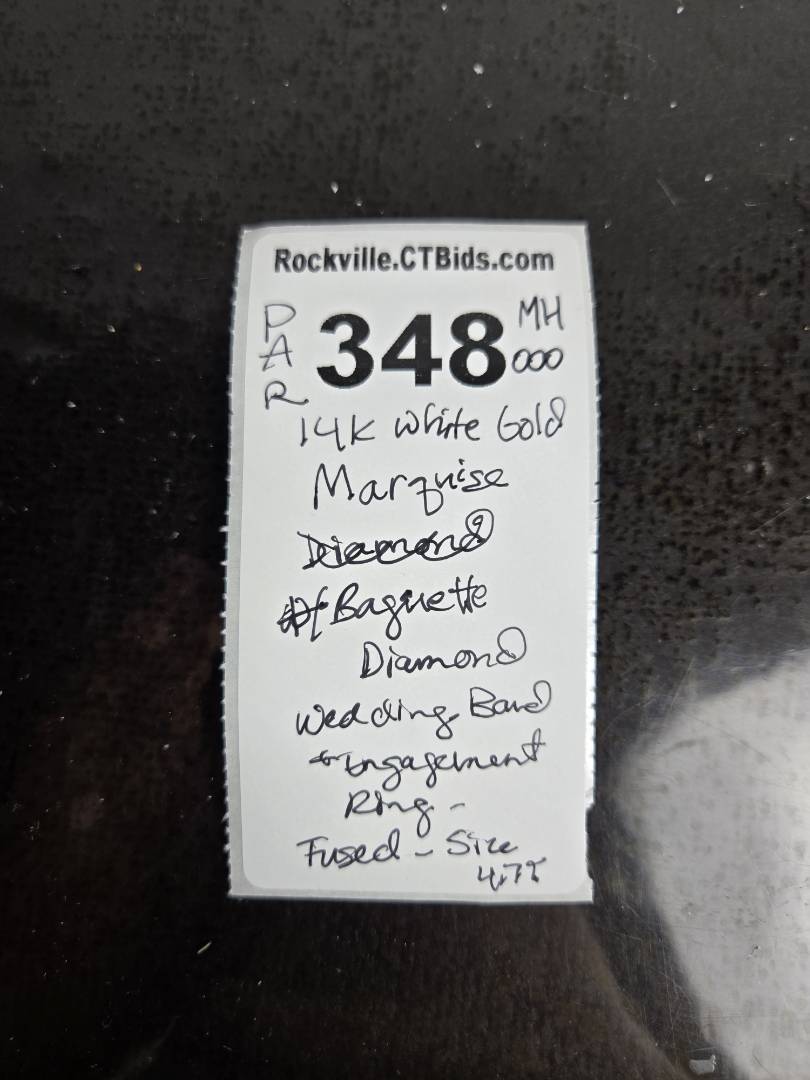 Rockville.CTBids.com
PAR 348 MH
000
14K White Gold
Marquise
Diamond
Baguette
Diamond
Wedding Band
+ Engagement
Ring -
Fused - Size
4.75